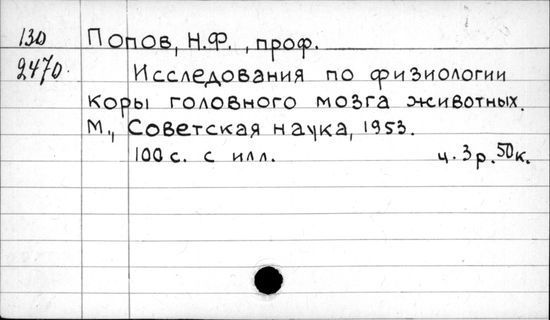 130 Попов, Н.Ф., проф.
2470. Исследования по физиологии
коры головного мозга животных.
М., Советская наука, 1953.
100 с. с илл. ц. 3 р. 50 к.